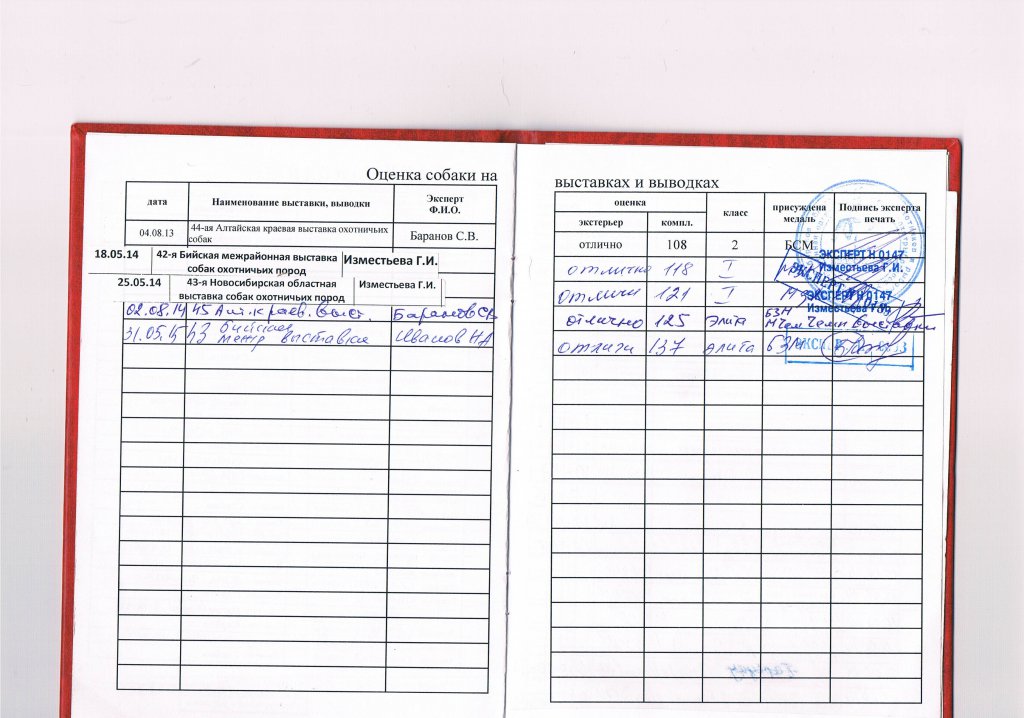 Оценка собаки на
дата Наименование выставки, выводки Эксперт
Ф.И.О.
04.08.13 44-ая Алтайская краевая выставка охотничьих
собак Баранов С.В.
18.05.14 42-я Бийская межрайонная выставка
собак охотничьих пород Изместьева Г.И.
25.05.14 43-я Новосибирская областная
выставка собак охотничьих пород Изместьева Г.И.
02.08.14 45 Алт. краев. выст. Баранов СВ
31.05.15 43 Бийская
межр выставка Иванов НА
выставках и выводках
оценка класс присуждена
медаль Подпись эксперта
печать
экстерьер компл.
отлично 108 2 БСМ
отлично 118 I
ЭКСПЕРТ Н 0147
Изместьева Г.И.
отлично 121 I
ЭКСПЕРТ Н 0147
Изместьева Г.И.
отлично 125 элита БЗМ
Чемп выставки
отлично 137 элита БЗМ